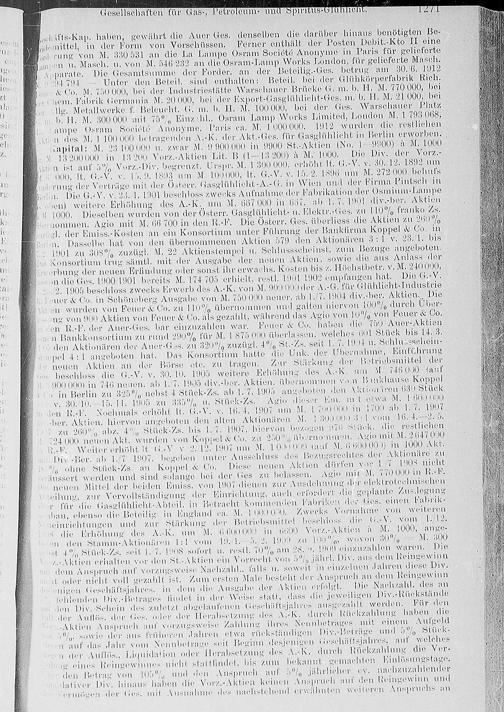 Gesellschaften für Gas-, Petroleum- und Spiritus-Glühlicht. 1271
Kap. haben, gewährt der Auer Ges. denselben die darüber hinaus benötigten Be-
mittel, in der Form von Vorschüssen. Ferner enthält der Posten Debit.-Kto II eine
rung von M. 330 531 an die La Lampe Osram Société Anonyme in Paris für gelieferte
u. Masch. u. von M. 546 232 an die Osram-Lamp Works London, für gelieferte Masch.
parate. Die Gesamtsumme der Forder. an der Beteilig.-Ges. betrug am 30./6. 1912
Unter den Beteil. sind enthalten: Beteil. bei der Glühkörperfabrik Rich.
& Co. M. 750 000, bei der Industriestätte Warschauer Brücke G. m. b. H. M. 770 000, bei
Chem. Fabrik Germania M. 20 000, bei der Export-Gasglühlicht-Ges. m. b. H. M. 21 000, bei
Metallwerke f. Beleucht. G. m. b. H. M. 100 000, bei der Ges. Warschauer Platz
b. H. M. 300 000 mit 75% Einzahl., Osram Lamp Works Limited, London M. 1 793 068,
Lampe Osram Société Anonyme, Paris ca. M. 1 000 000. 1912 wurden die restlichen
des M. 1 100 000 betragenden A.-K. der Akt.-Ges. für Gasglühlicht in Berlin erworben.
Kapital: M. 23 100 000 u. zwar M. 9 900 000 in 9900 St.-Aktien (No. 1–9900) à M. 1000
M. 13 200 000 in 13 200 Vorz.-Aktien Lit. B (1–13 200) à M. 1000. Die Div. der Vorz.-
ist auf 5% Vorz.-Div. begrenzt. Urspr. M. 1 300 000, erhöht lt. G.-V. v. 30./12. 1892 um
000, lt. G.-V. v. 15./9. 1893 um M. 100 000, lt. G.-V. v. 15./2. 1896 um M. 272 000 behufs
rung der Verträge mit der Österr. Gasglühlicht-A.-G. in Wien und der Firma Pintsch in
Die G.-V. v. 23./1. 1901 beschloss zwecks Aufnahme der Fabrikation der Osmium-Lampe
weitere Erhöhung des A.-K. um M. 667 000 in 667, ab 1./7. 1901 div.-ber. Aktien
1000. Dieselben wurden von der Österr. Gasglühlicht- u. Elektr.-Ges. zu 110% franko Zs.
nommen, Agio mit M. 66 700 in den R.-F. Die Österr. Ges. überliess die Aktien zu 260%
der Emiss.-Kosten an ein Konsortium unter Führung der Bankfirma Koppel & Co.
Dasselbe hat von den übernommenen Aktien 579 den Aktionären 3 : 1 v. 23./1. bis
1901 zu 308% zuzügl. M. 22 Aktienstempel u. Schlussscheinst. zum Bezuge angeboten.
Konsortium trug sämtl. mit der Ausgabe der neuen Aktien, sowie die aus Anlass der
rbung der neuen Erfindung oder sonst ihr erwachs. Kosten bis z. Höchstbetr. v. M. 240 000,
die Ges. 1900/1901 bereits M. 174 705 erhielt, restl. 1901/1902 empfangen hat. Die G.-V.
2. 1905 beschloss zwecks Erwerb des A.-K. von M. 900 000 der A.-G. für Glühlicht-Industrie
uer & Co. in Schöneberg Ausgabe von M. 750 000 neuer, ab 1./7. 1904 div.-ber. Aktien. Die
wurden von Feuer & Co. zu 110% übernommen und galten hiervon 100% durch Über-
ng von 900 Aktien von Feuer & Co. als gezahlt, während das Agio von 10% von Feuer & Co.
R.-F. der Auer-Ges. bar einzuzahlen war. Feuer & Co. haben die 750 Auer-Aktien
Bankkonsortium zu rund 290% für M. 1 875 000 überlassen, welches 601 Stück bis 14./3.
den Aktionären der Auer-Ges. zu 320% zuzügl. 4% St.-Zs. seit 1./7. 1904 u. Schlussschein-
pel 4 : 1 angeboten hat. Das Konsortium hatte die Unk. der Übernahme, Einführung
neuen Aktien an der Börse etc. zu tragen. Zur Stärkung der Betriebsmittel der
beschloss die G.-V. v. 30./10. 1905 neue Erhöhung des A.-K. um M. 746 000 (auf
900 000) in 746 neuen, ab 1./7. 1905 div.-ber. Aktien, übernommen von Bankhause Koppel
in Berlin zu 325% nebst 4% Stück-Zs. ab 1./7. 1905 angeboten den Aktionären 639 Stück
v. 30./10.–15./11. 1905 zu 335% u. Stück-Zs. Agio dieser Em. mit etwa M. 1 600 000
den R.-F. Nochmals erhöht lt. G.-V. v. 16./4. 1907 um M. 1 700 000 in 1700 ab 1./7. 1907
-ber. Aktien, hiervon angeboten den alten Aktionären M. 1 300 000 4 : 1 vom 16./4.–2./5.
zu 260%, abz. 4% Stück-Zs. bis 1./7. 1907, hiervon bezogen 976 Stück, die restlichen
724 000 neuen Akt. wurden von Koppel & Co. zu 250% übernommen. Agio mit M. 2 647 000
R.-F. Weiter erhöht lt. G.-V. v. 2./12. 1907 um M. 1 000 000 (auf M. 6 600 000) in 1000 Akt.
Div.-Ber. ab 1./7. 1907, begeben unter Ausschluss des Bezugsrechtes der Aktionäre zu
% ohne Stück-Zs. an Koppel & Co. Diese neuen Aktien dürfen vor 1./7. 1908 nicht
äussert werden und sind solange bei der Ges. zu belassen. Agio mit M. 770 000 in R.-F.
neuen Mittel der beiden Emiss. von 1907 dienen zur Ausdehnung der elektrotechnischen
eilung, zur Vervollständigung der Einrichtung, auch erfordert die geplante Zuslegung
für die Gasglühlicht-Abteil. in Betracht kommenden Fabriken der Ges. einen Fabrik-
bau, ebenso die Beteilig. in England ca. M. 1 000 000. Zwecks Vornahme von weiteren
einrichtungen und zur Stärkung der Betriebsmittel beschloss die G.-V. vom 1./12.
die Erhöhung des A.-K. um M. 6 600 000 in 6600 Vorz.-Aktien à M. 1000, ange-
den Stamm-Aktionären 1 : 1 vom 19./1.–5./2. 1909 zu 100%, wovon 30% = M. 300
4% Stück-Zs. seit 1./7. 1908 sofort u. restl. 70% am 28./9. 1909 einzuzahlen waren. Die
z.-Aktien erhalten vor den St.-Aktien ein Vorrecht von 5% jährl. Div. aus dem Reingewinn
dem Anspruch auf vorzugsweise Nachzahl., falls u. soweit in einzelnen Jahren diese Div.
oder nicht voll gezahlt ist. Zum ersten Male besteht der Anspruch an dem Reingewinn
enigen Geschäftsjahres, in dem die Ausgabe der Aktien erfolgt. Die Nachzahl. des an
fehlenden Div.-Betrages findet in der Weise statt, dass die jeweiligen Div.-Rückstände
den Div. Schein des zuletzt abgelaufenen Geschäftsjahres ausgezahlt werden. Für den
der Auflös. der Ges. oder der Herabsetzung des A.-K. durch Rückzahlung haben die
Aktien Anspruch auf vorzugsweise Zahlung ihres Nennbetrages mit einem Aufgeld
5% sowie der aus früheren Jahren etwa rückständigen Div.-Beträge und 5% Stück-
auf das Jahr vom Nennbetrage seit Beginn desjenigen Geschäftsjahres, auf welches
der Auflös., Liquidation oder Herabsetzung des A.-K. durch Rückzahlung die Ver-
g eines Reingewinnes nicht stattfindet, bis zum bekannt gemachten Einlösungstage.
den Betrag von 105% und den Anspruch auf 5% jährlicher ev. nachzuzahlender
lativer Div. hinaus haben die Vorz.-Aktien keinen Anspruch auf den Reingewinn und
ermögen der Ges. mit Ausnahme des nachstehend erwähnten weiteren Anspruchs an